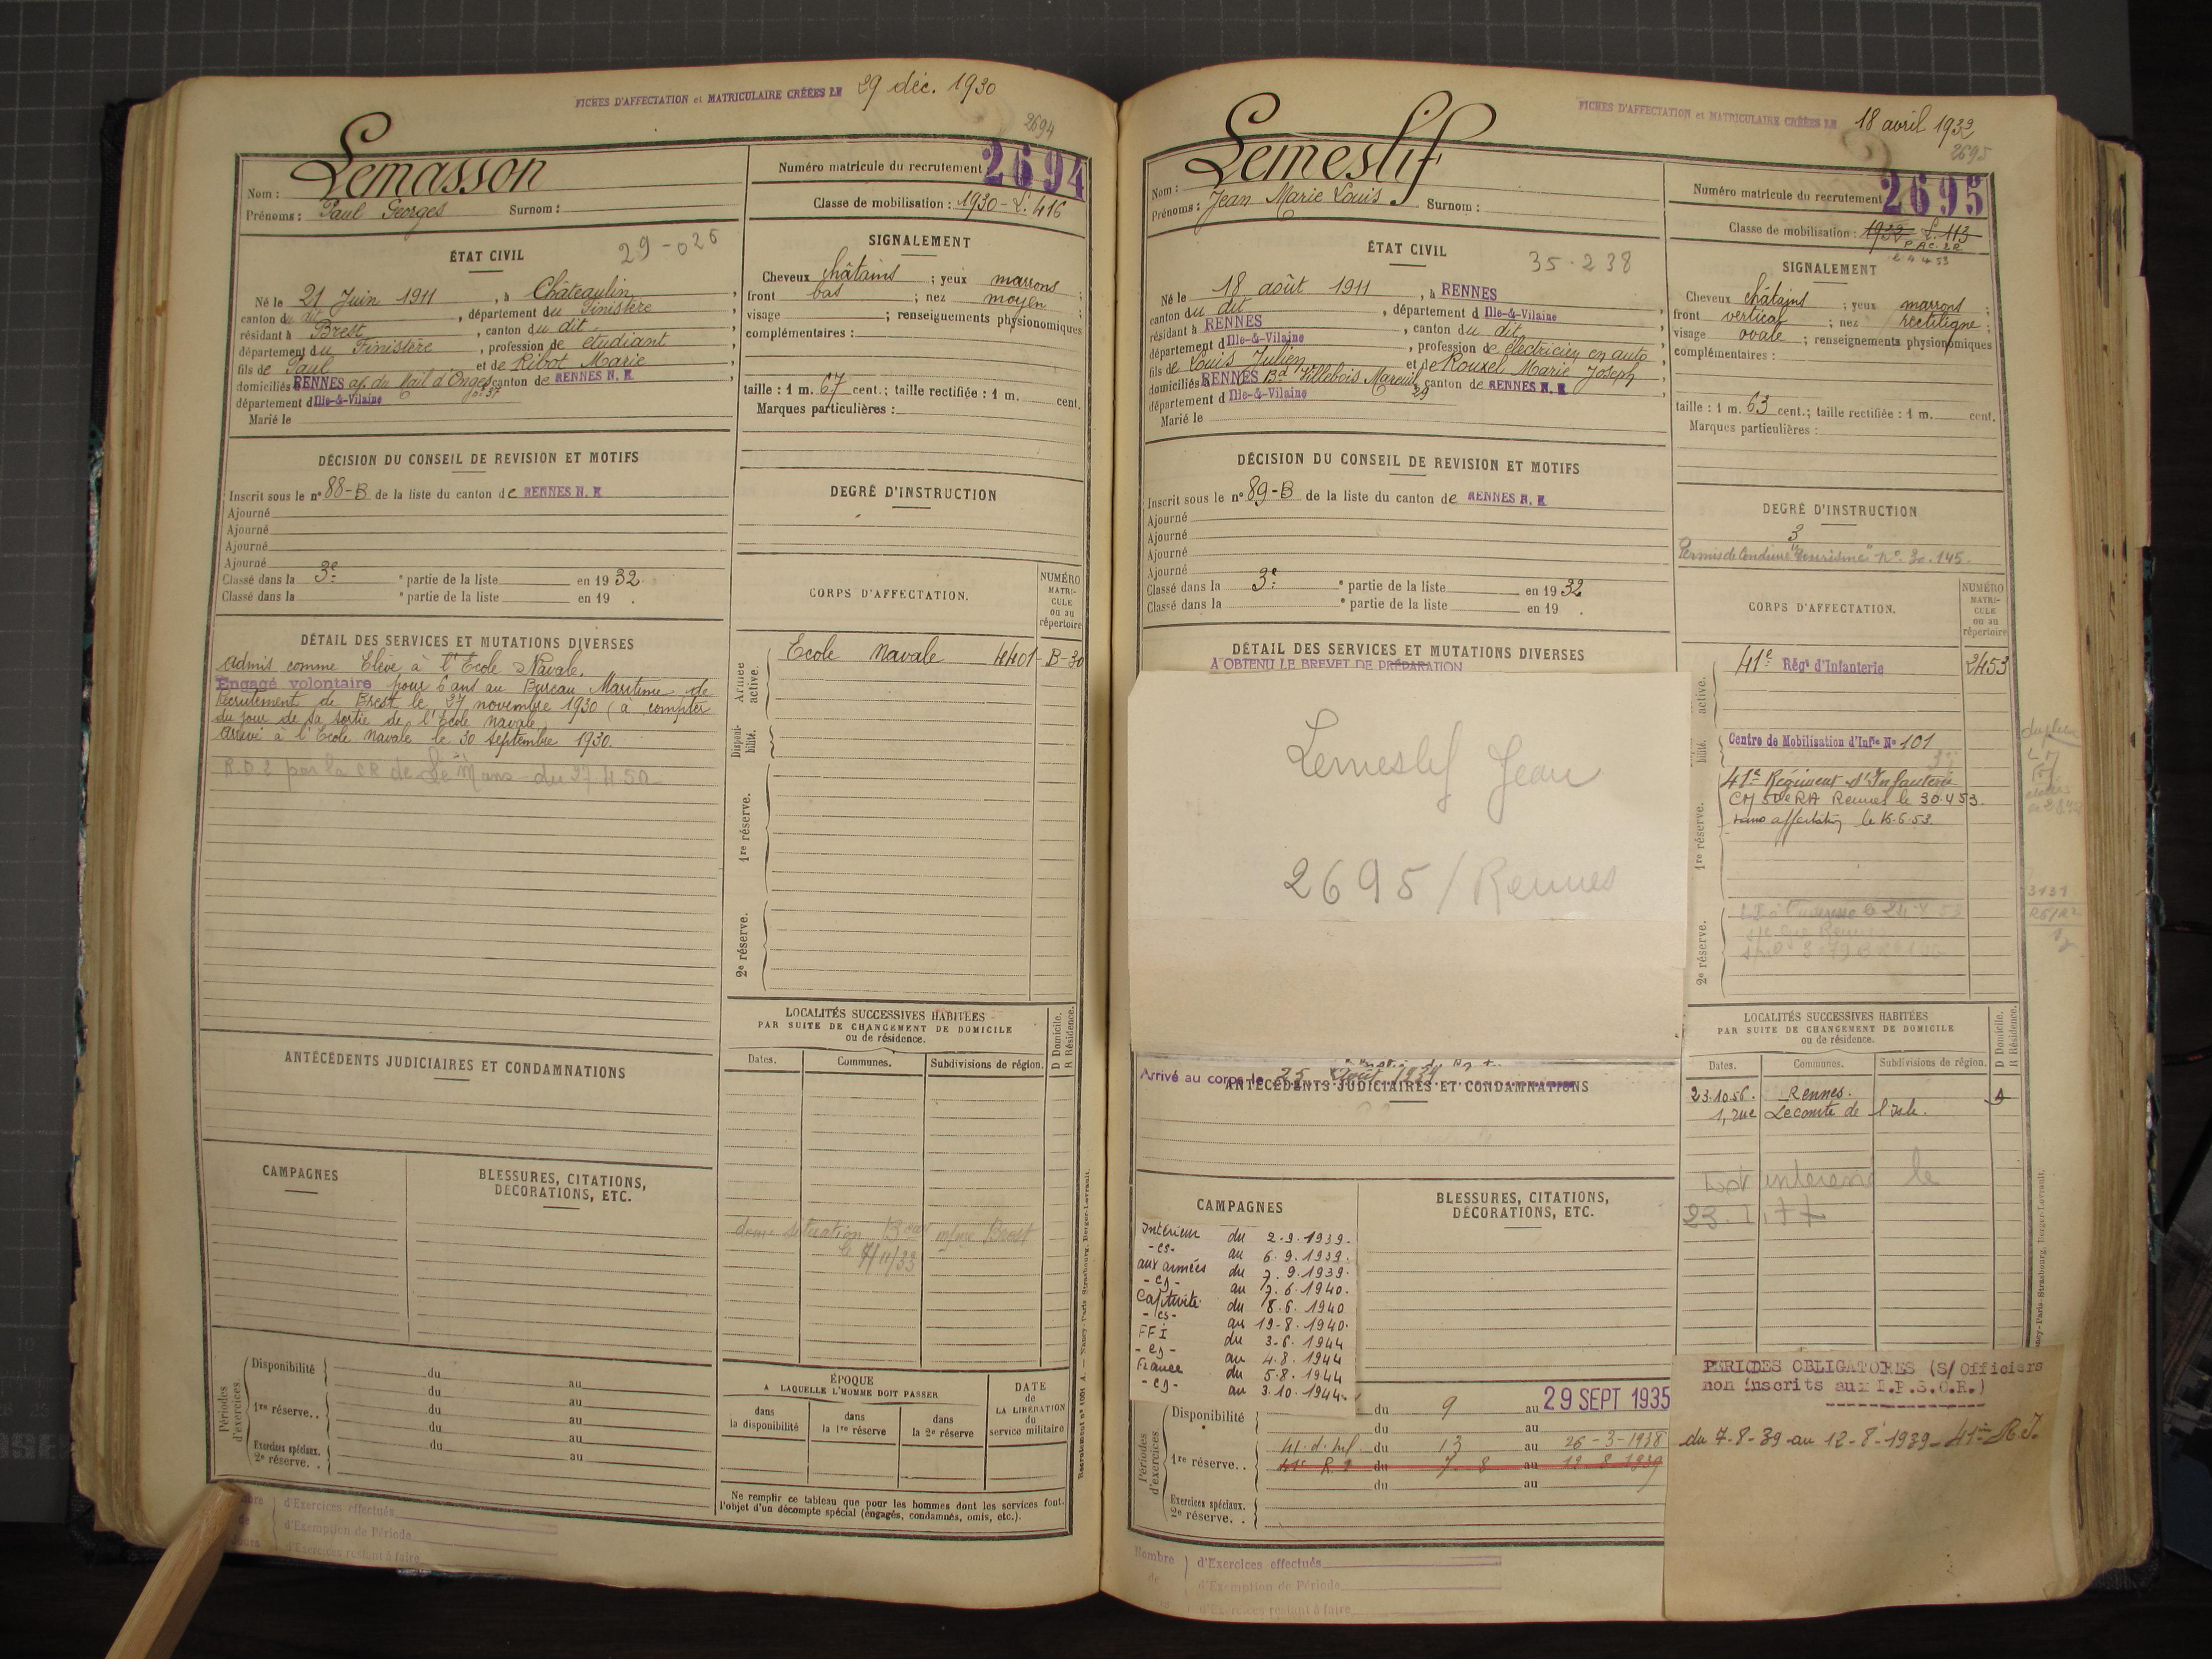 FICHES D'AFFECTATION et MATRICULAIRE CRÉÉES LE 29 déc. 1930
2694
Nom : Lemasson
Prénoms : Paul Georges Surnom :
Numéro matricule du recrutement 2694
Classe de mobilisation : 1930 - L. 416
ÉTAT CIVIL
29-026
Né le 21 Juin 1911, à Châteaulin,
canton du dit, département du Finistère
résidant à Brest, canton du dit,
département du Finistère, profession de étudiant
fils de Paul et de Ribot Marie
domiciliés à RENNES af. du Mail d'Onges canton de RENNES N. E,
département d Ille-&-Vilaine n° 37
Marié le
SIGNALEMENT
Cheveux châtains ; yeux marrons ;
front bas ; nez moyen ;
visage ; renseignements physionomiques
complémentaires :
taille : 1 m. 67 cent.; taille rectifiée : 1 m. cent.
Marques particulières :
DÉCISION DU CONSEIL DE REVISION ET MOTIFS
Inscrit sous le n° 88-B de la liste du canton de RENNES N. E
Ajourné
Ajourné
Ajourné
Ajourné
Classé dans la 3e ° partie de la liste en 1932.
Classé dans la ° partie de la liste en 19 .
DEGRÉ D'INSTRUCTION
CORPS D'AFFECTATION.
NUMÉRO MATRI-CULE ou au répertoire
DÉTAIL DES SERVICES ET MUTATIONS DIVERSES
Admis comme Elève à l'Ecole Navale.
Engagé volontaire pour 6 ans au Bureau Maritime de
Recrutement de Brest le 27 novembre 1930 (à compter
du jour de sa sortie de l'Ecole navale.
Arrivé à l'Ecole navale le 30 septembre 1930.
par la CR de Le Mans du 27.4.50
Armée active.
Ecole Navale 4401-B-30
Disponibilité.
1re réserve.
2e réserve.
LOCALITÉS SUCCESSIVES HABITÉES
PAR SUITE DE CHANGEMENT DE DOMICILE
ou de résidence.
D Domicile.
R Résidence.
Dates. Communes. Subdivisions de région.
situation Brest
ANTÉCÉDENTS JUDICIAIRES ET CONDAMNATIONS
CAMPAGNES
BLESSURES, CITATIONS,
DÉCORATIONS, ETC.
Périodes d'exercices
Disponibilité du au
du au
1re réserve.. du au
du au
Exercices spéciaux. du au
2e réserve. .
ÉPOQUE
A LAQUELLE L'HOMME DOIT PASSER
dans la disponibilité
dans la 1re réserve
dans la 2e réserve
DATE de LA LIBÉRATION du service militaire
Ne remplir ce tableau que pour les hommes dont les services font
l'objet d'un décompte spécial (engagés, condamnés, omis, etc.).
d'Exercices effectués
d'Exemption de Période
d'Exercices restant à faire
FICHES D'AFFECTATION et MATRICULAIRE CRÉÉES LE 18 avril 1933
2695
Nom : Lemeslif
Prénoms : Jean Marie Louis Surnom :
Numéro matricule du recrutement 2695
Classe de mobilisation : 1932 L. 113
ÉTAT CIVIL
35-238
Né le 18 août 1911, à RENNES
canton du dit, département d Ille-&-Vilaine
résidant à RENNES, canton du dit,
département d Ille-&-Vilaine, profession de électricien en auto,
fils de Louis Julien et de Rouxel Marie Joseph
domiciliés à RENNES Bd Villebois Mareuil canton de RENNES N. E,
département d Ille-&-Vilaine 29
Marié le
SIGNALEMENT
Cheveux châtains ; yeux marrons ;
front vertical ; nez rectiligne ;
visage ovale ; renseignements physionomiques
complémentaires :
taille : 1 m. 63 cent.; taille rectifiée : 1 m. cent.
Marques particulières :
DÉCISION DU CONSEIL DE REVISION ET MOTIFS
Inscrit sous le n° 89-B de la liste du canton de RENNES N. E
Ajourné
Ajourné
Ajourné
Ajourné
Classé dans la 3e ° partie de la liste en 1932
Classé dans la ° partie de la liste en 19 .
DEGRÉ D'INSTRUCTION
3
Permis de Conduire "Tourisme" n° 30.145.
CORPS D'AFFECTATION.
NUMÉRO MATRI-CULE ou au répertoire
DÉTAIL DES SERVICES ET MUTATIONS DIVERSES
A OBTENU LE BREVET DE PRÉPARATION
Lemeslif Jean
2695/Rennes
active.
41e Régt d'Infanterie 2453
Centre de Mobilisation d'Infie N° 101
41e Régiment d'Infanterie
Rennes le 30.4.53.
sans affectation le 16.6.53.
1re réserve.
2e réserve.
LOCALITÉS SUCCESSIVES HABITÉES
PAR SUITE DE CHANGEMENT DE DOMICILE
ou de résidence.
D Domicile.
R Résidence.
Dates. Communes. Subdivisions de région.
23.10.56. Rennes.
1, rue Lecomte de l'Isle.
Arrivé au corps le 25 Août 1939
ANTÉCÉDENTS JUDICIAIRES ET CONDAMNATIONS
CAMPAGNES
Intérieur du 2.9.1939.
au 6.9.1939.
aux armées du 7.9.1939.
au 7.6.1940.
Captivité du 8.6.1940
au 19-8.1940.
FFI du 3-6.1944
au 4.8.1944
France du 5.8.1944
au 3.10.1944.
BLESSURES, CITATIONS,
DÉCORATIONS, ETC.
Périodes d'exercices
Disponibilité du 9 au 29 SEPT 1935
du au
1re réserve.. 41. d. Inf. du 13 au 26-3-1938
41e R.I du 7 8 au 12 8 1939
du au
Exercices spéciaux.
2e réserve. .
PERIODES OBLIGATOIRES (S/Officiers
non inscrits aux I.P.S.O.R.)
du 7-8-39 au 12-8-1939 - 41e R.I.
Nombre de d'Exercices effectués
d'Exemption de Période
d'Exercices restant à faire